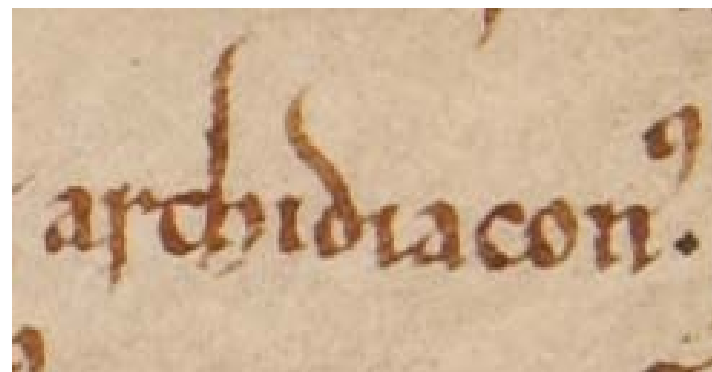 archidiaconꝰ.